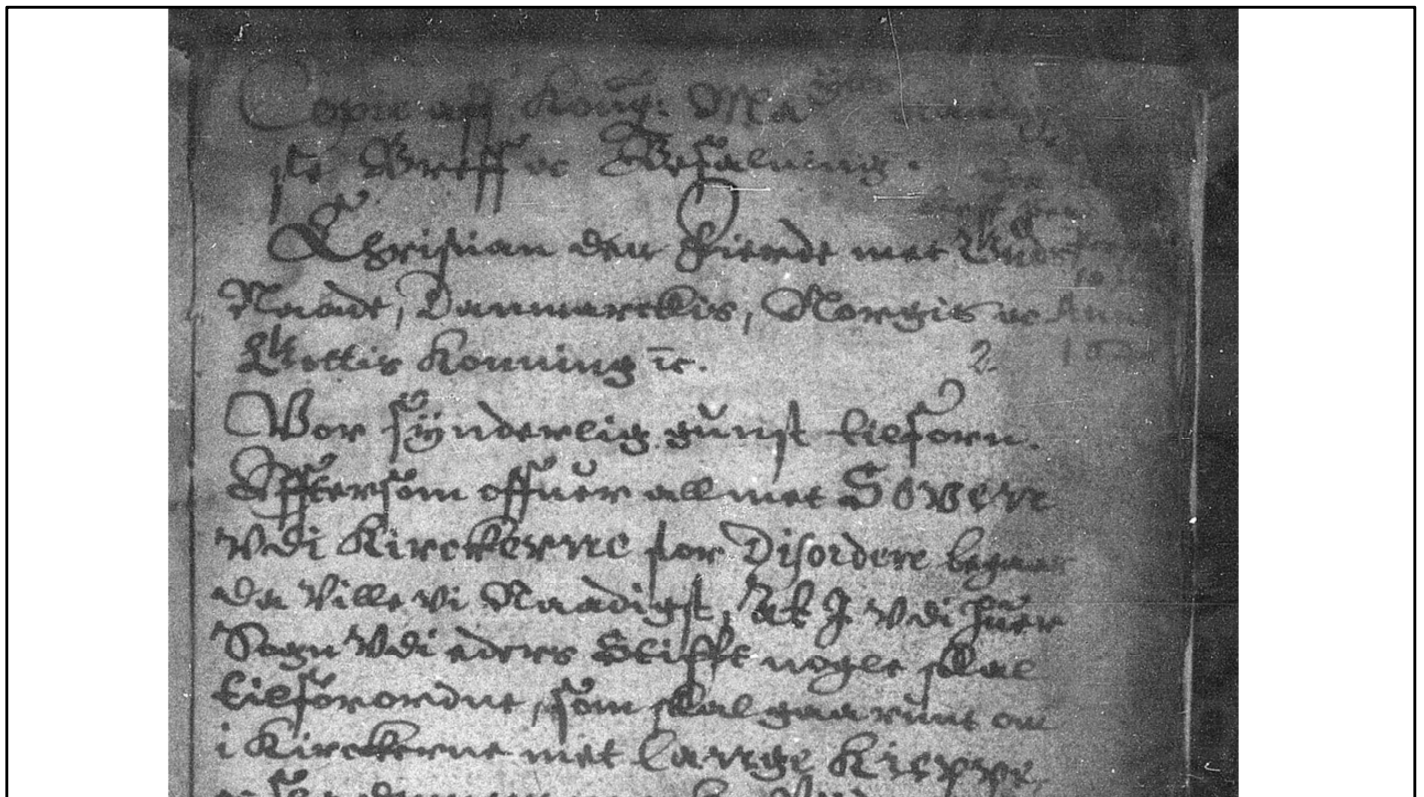 Copie aff Kong: Ma
ste Breff oc Befalning.
Christian den Fierde met Guds
Naade, Danmarckis, Norgis oc
Gottis Konning ꝛc. 2.
Vor synderlig gunst tilforn.
Efftersom offuer alt met Soven
vdi Kirckerne stor Disordere begaaes
da Ville vi Naadigst, At I vdi huer
Sogn Vdi eders Stifft nogle skal
tilforordne, som skal gaa runt om
i Kirckerne met lange Kieppe,